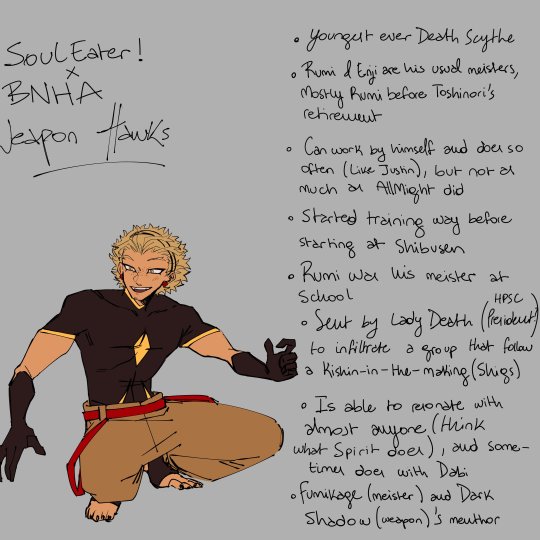 Soul Eater!
x
BNHA
Weapon Hawks
• Youngest ever Death Scythe
• Rumi & Enji are his usual meisters,
Mostly Rumi before Toshinori's
retirement
• Can work by himself and does so
often (Like Justin), but not as
much as AllMight did
• Started training way before
starting at Shibusen
• Rumi was his meister at
school
• Sent by Lady Death (HPSC President)
to infiltrate a group that follow
a Kishin-in-the-making (Shigs)
• Is able to resonate with
almost anyone (think
what Spirit does), and some-
times does with Dabi
• Fumikage (meister) and Dark
Shadow (weapon)'s menthor